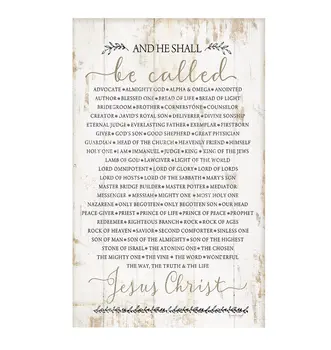 AND HE SHALL
be called
ADVOCATE • ALMIGHTY GOD • ALPHA & OMEGA • ANOINTED
AUTHOR • BLESSED ONE • BREAD OF LIFE • BREAD OF LIGHT
BRIDEGROOM • BROTHER • CORNERSTONE • COUNSELOR
CREATOR • DAVID'S ROYAL SON • DELIVERER • DIVINE SONSHIP
ETERNAL JUDGE • EVERLASTING FATHER • EXEMPLAR • FIRSTBORN
GIVER • GOD'S SON • GOOD SHEPHERD • GREAT PHYSICIAN
GUARDIAN • HEAD OF THE CHURCH • HEAVENLY FRIEND • HIMSELF
HOLY ONE • I AM • IMMANUEL • JUDGE • KING • KING OF THE JEWS
LAMB OF GOD • LAWGIVER • LIGHT OF THE WORLD
LORD OMNIPOTENT • LORD OF GLORY • LORD OF LORDS
LORD OF HOSTS • LORD OF THE SABBATH • MARY'S SON
MASTER BRIDGE BUILDER • MASTER POTTER • MEDIATOR
MESSENGER • MESSIAH • MIGHTY ONE • MOST HOLY ONE
NAZARENE • ONLY BEGOTTEN • ONLY BEGOTTEN SON • OUR HEAD
PEACE GIVER • PRIEST • PRINCE OF LIFE • PRINCE OF PEACE • PROPHET
REDEEMER • RIGHTEOUS BRANCH • ROCK • ROCK OF AGES
ROCK OF HEAVEN • SAVIOR • SECOND COMFORTER • SINLESS ONE
SON OF MAN • SON OF THE ALMIGHTY • SON OF THE HIGHEST
STONE OF ISRAEL • THE ATONING ONE • THE CHOSEN
THE MIGHTY ONE • THE VINE • THE WORD • WONDERFUL
THE WAY, THE TRUTH & THE LIFE
Jesus Christ